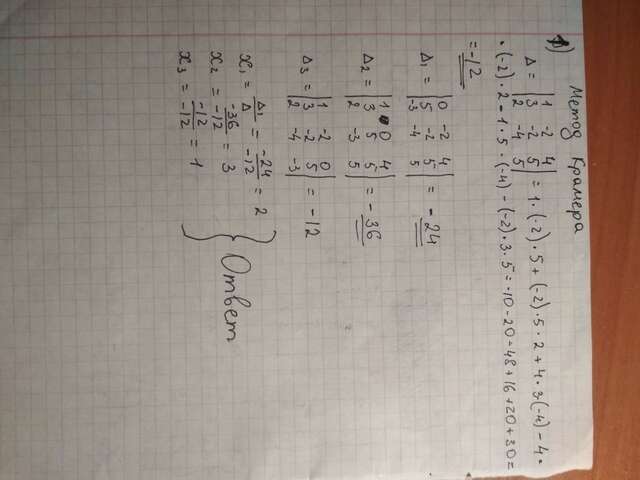 Метод Крамера
1) Δ = |1 -2 4|
|3 -2 5|
|2 -4 5| = 1·(-2)·5 + (-2)·5·2 + 4·3·(-4) - 4·
·(-2)·2 - 1·5·(-4) - (-2)·3·5 = -10 - 20 - 48 + 16 + 20 + 30 =
= -12
Δ1 = |0 -2 4|
|5 -2 5|
|-3 -4 5| = -24
Δ2 = |1 0 4|
|3 5 5|
|2 -3 5| = -36
Δ3 = |1 -2 0|
|3 -2 5|
|2 -4 -3| = -12
x1 = Δ1/Δ = -24/-12 = 2
x2 = -36/-12 = 3
x3 = -12/-12 = 1
Ответ